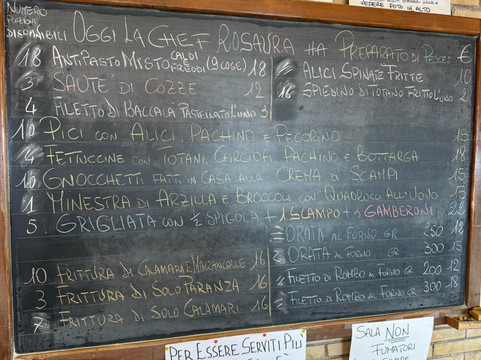 NUMERO
PORZIONI
DISPONIBILI
OGGI LA CHEF ROSAURA HA PREPARATO DI PESCE: €
18 ANTIPASTO MISTO CALDI FREDDI (9 COSE) 18
3 SAUTE DI COZZE 12
4 FILETTO DI BACCALÀ PASTELLATO L'UNO 3
= ALICI SPINATE FRITTE 10
16 SPIEDINO DI TOTANO FRITTO L'UNO 2
10 PICI CON ALICI PACHINO E PECORINO 15
4 FETTUCCINE CON TOTANI, CARCIOFI PACHINO E BOTTARGA 18
10 GNOCCHETTI FATTI IN CASA ALLA CREMA DI SCAMPI 15
1 MINESTRA DI ARZILLA E BROCCOLI CON QUADRUCCI ALL'UOVO 15
5 GRIGLIATA CON ½ SPIGOLA + 1 SCAMPO + 1 GAMBERONI 22
= ORATA AL FORNO GR 250 18
= ORATA AL FORNO GR 300 15
10 FRITTURA DI CALAMARI E MAZZANCOLLE 16
3 FRITTURA DI SOLO PARANZA 16
7 FRITTURA DI SOLO CALAMARI 16
= FILETTO DI ROMBO AL FORNO GR 200 12
= FILETTO DI ROMBO AL FORNO GR 300 18
PER ESSERE SERVITI PIÙ
SALA NON
FUMATORI
VEDERE FOTO IN ALTO